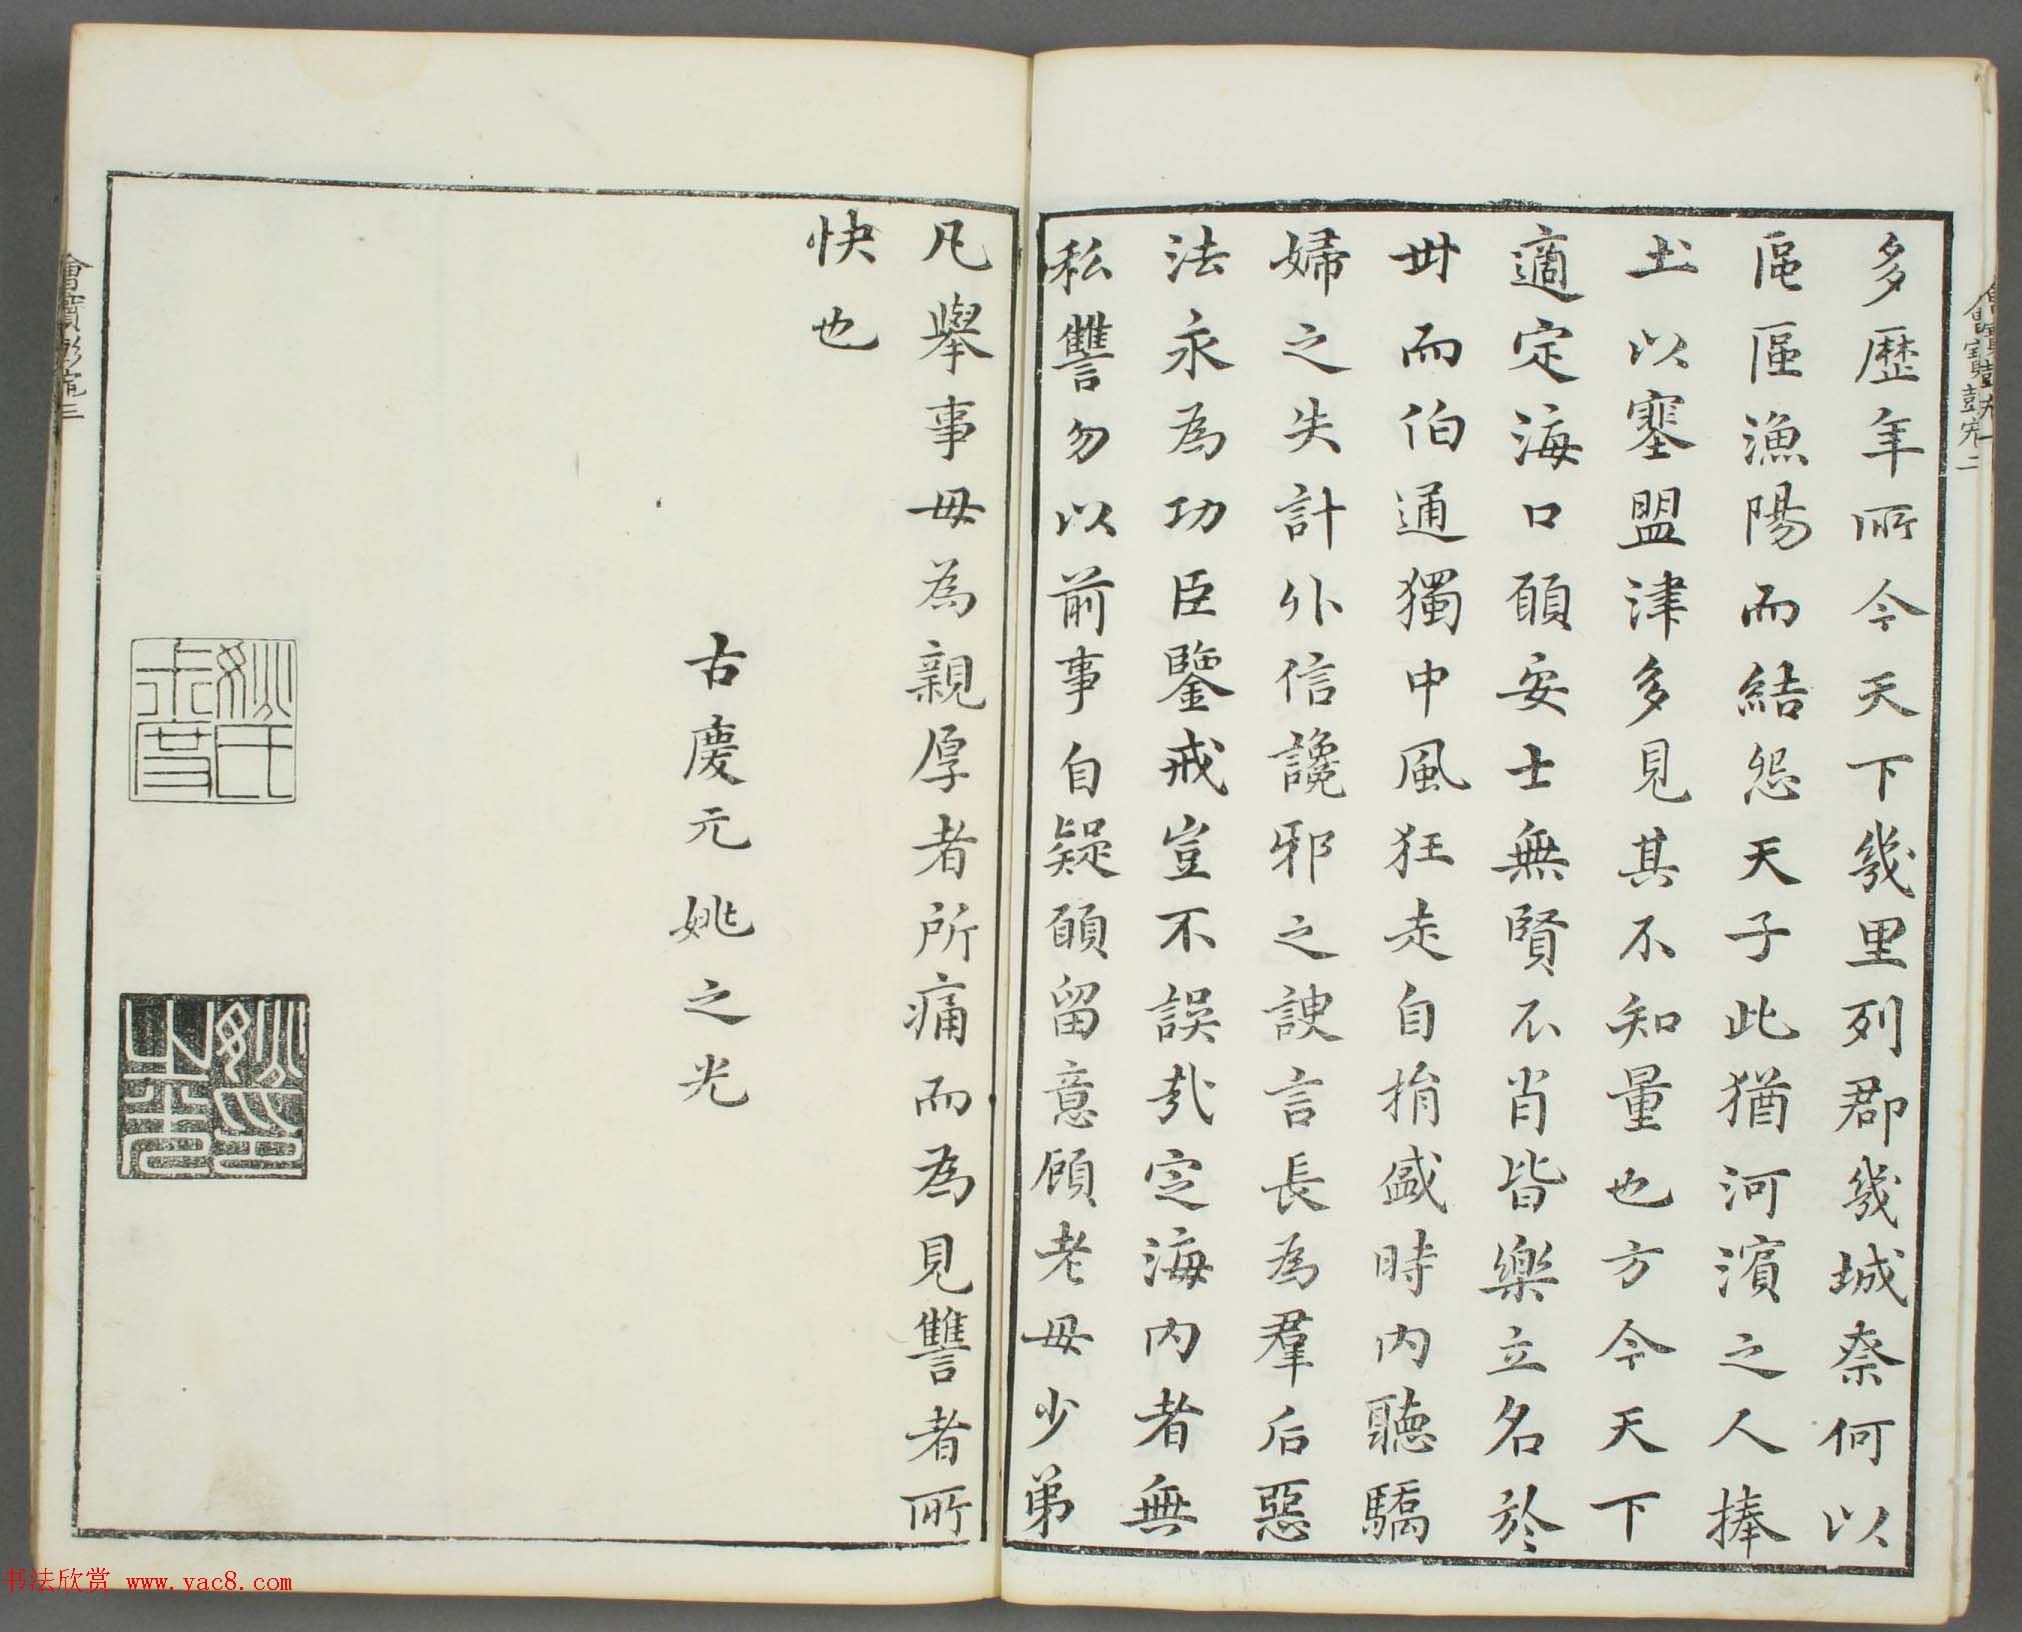 多歷年所今天下幾里列郡幾城奈何以
區區漁陽而結怨天子此猶河濱之人捧
土以塞盟津多見其不知量也方今天下
適定海口願安士無賢不肖皆樂立名於
世而伯通獨中風狂走自捐盛時內聽驕
婦之失計外信讒邪之諛言長為羣后惡
法永為功臣鑒戒豈不誤哉定海內者無
私讐勿以前事自疑願留意顧老母少弟
凡舉事毋為親厚者所痛而為見讐者所
快也
古慶元姚之光
书法欣赏 www.yac8.com